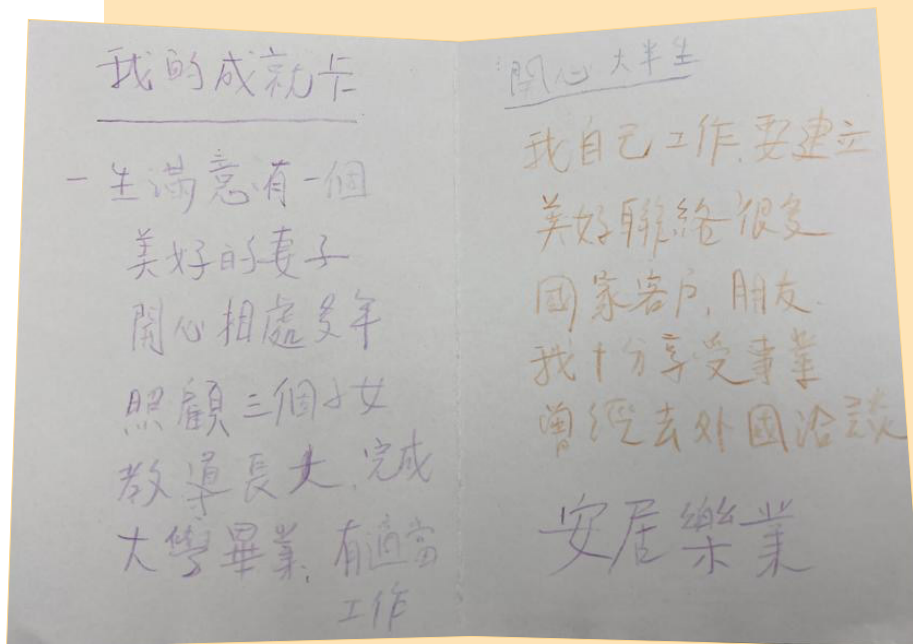 我的成就卡
一生滿意有一個
美好的妻子
開心相處多年
照顧三個小女
教導長大,完成
大學畢業,有適當
工作
開心大半生
我自己工作,要建立
美好聯絡很多
國家客戶,朋友.
我十分享受事業
曾經去外國洽談
安居樂業